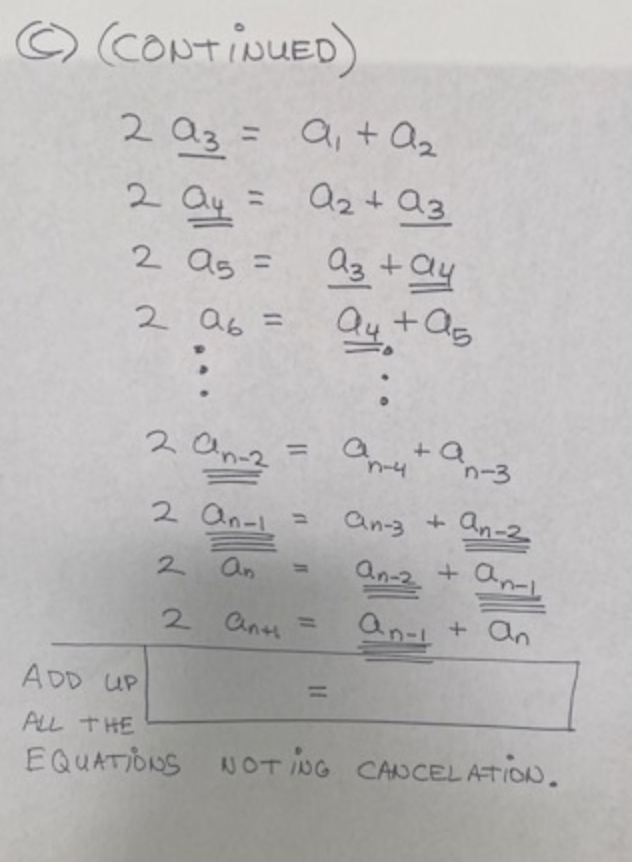 (C) (CONTINUED)
2 a₃ = a₁ + a₂
2 a₄ = a₂ + a₃
2 a₅ = a₃ + a₄
2 a₆ = a₄ + a₅
⋮ ⋮
2 aₙ₋₂ = aₙ₋₄ + aₙ₋₃
2 aₙ₋₁ = aₙ₋₃ + aₙ₋₂
2 aₙ = aₙ₋₂ + aₙ₋₁
2 aₙ₊₁ = aₙ₋₁ + aₙ
ADD UP =
ALL THE
EQUATIONS NOTING CANCELATION.